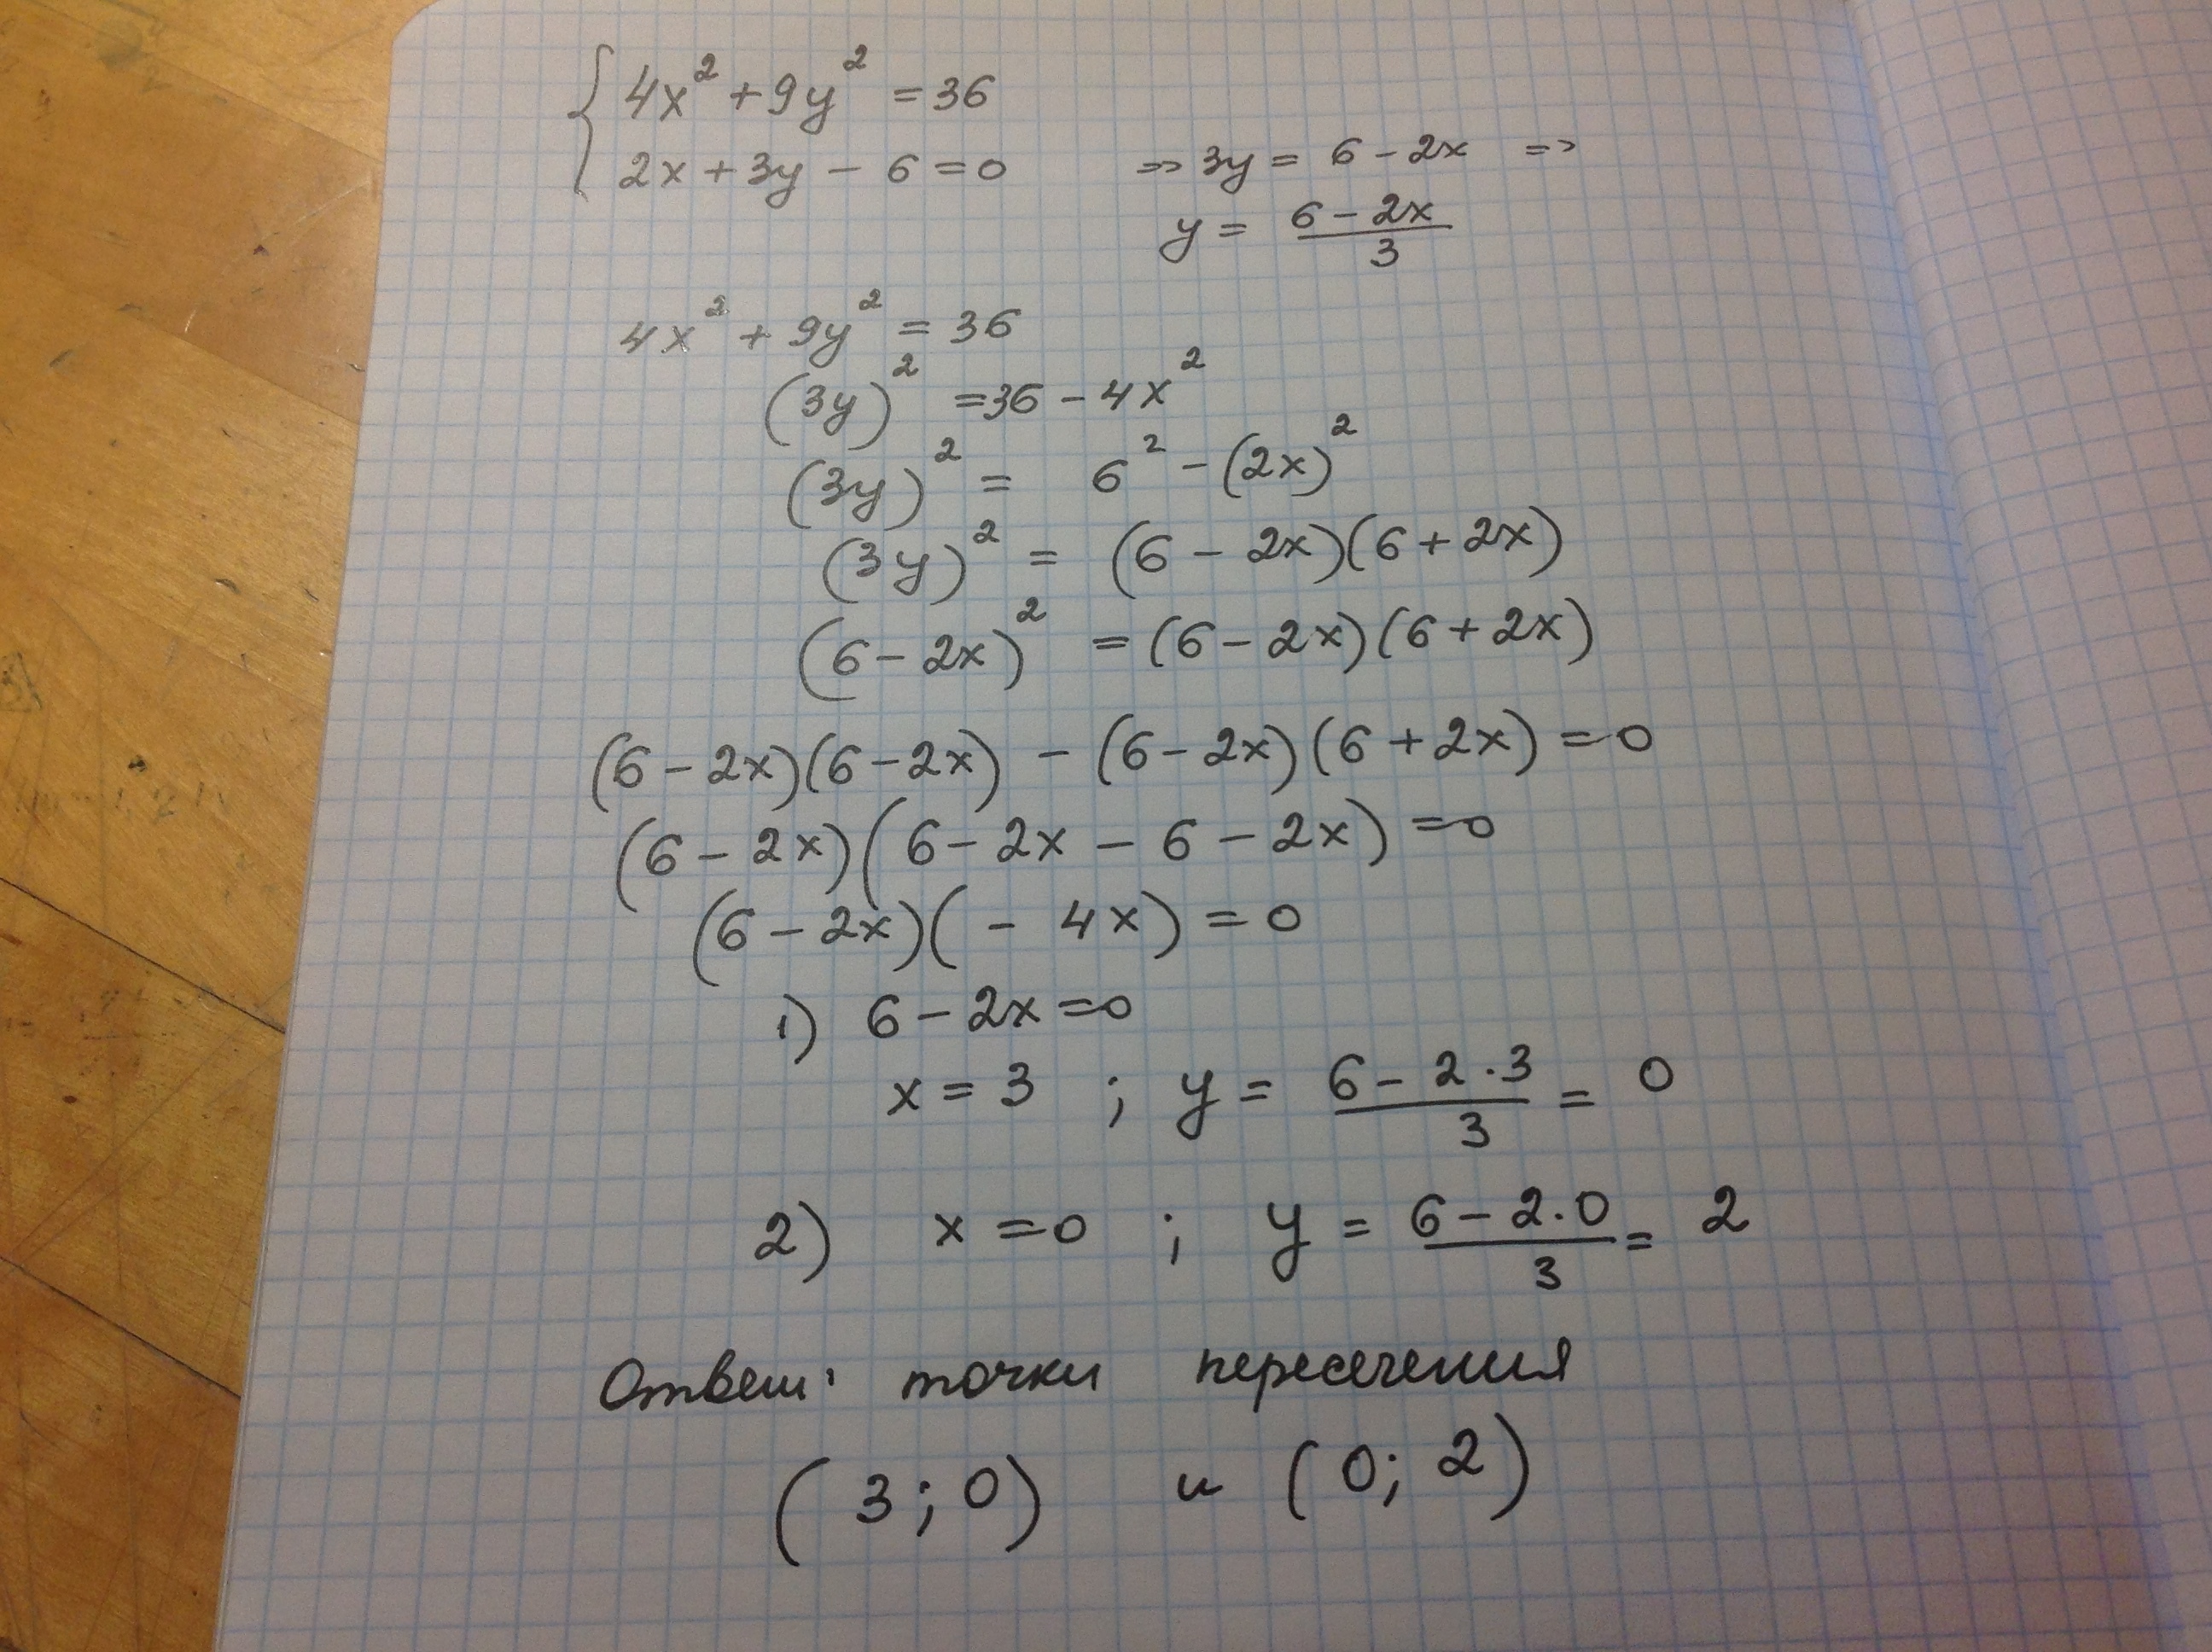 { 4x² + 9y² = 36
2x + 3y - 6 = 0 => 3y = 6 - 2x =>
y = (6 - 2x)/3
4x² + 9y² = 36
(3y)² = 36 - 4x²
(3y)² = 6² - (2x)²
(3y)² = (6 - 2x)(6 + 2x)
(6 - 2x)² = (6 - 2x)(6 + 2x)
(6 - 2x)(6 - 2x) - (6 - 2x)(6 + 2x) = 0
(6 - 2x)(6 - 2x - 6 - 2x) = 0
(6 - 2x)(- 4x) = 0
1) 6 - 2x = 0
x = 3 ; y = (6 - 2·3)/3 = 0
2) x = 0 ; y = (6 - 2·0)/3 = 2
Ответ: точки пересечения
(3; 0) и (0; 2)